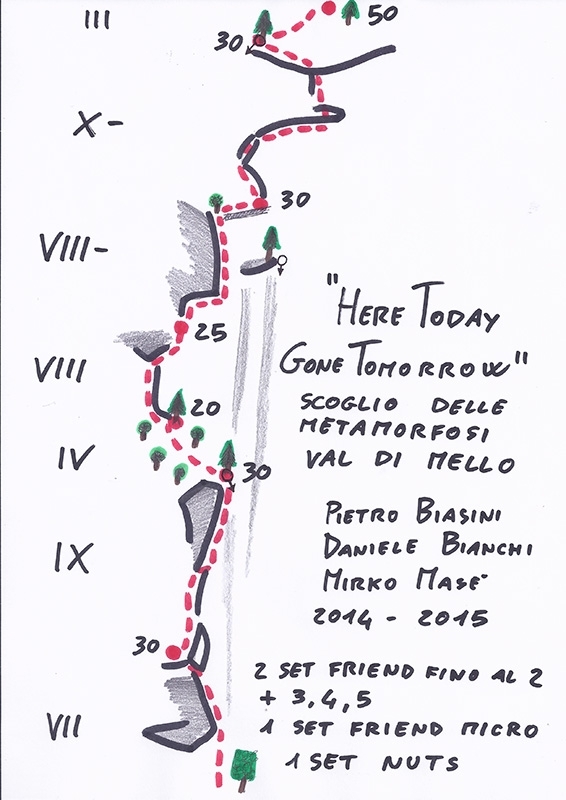 III
50
30
X-
30
VIII-
"HERE TODAY
GONE TOMORROW"
25
VIII
SCOGLIO DELLE
METAMORFOSI
VAL DI MELLO
20
IV
30
PIETRO BIASINI
DANIELE BIANCHI
MIRKO MASE'
2014 - 2015
IX
30
2 SET FRIEND FINO AL 2
+ 3,4,5
1 SET FRIEND MICRO
1 SET NUTS
VII